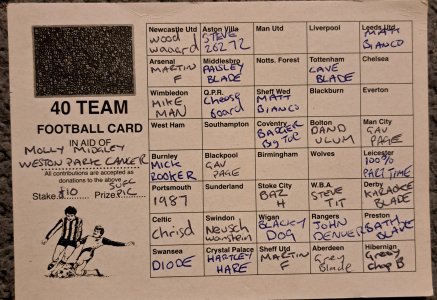 40 TEAM
FOOTBALL CARD
IN AID OF
MOLLY MIDGLEY
WESTON PARK CANCER
All contributions are accepted as
donations to the above
SUFC
Stake £10 Prize P.I.C
Newcastle Utd Aston Villa Man Utd Liverpool Leeds Utd
wood STEVE MATT
waaard 26272 BIANCO
Arsenal Middlesbro Notts. Forest Tottenham Chelsea
MARTIN PAISLEY CAVE
F BLADE BLADE
Wimbledon Q.P.R. Sheff Wed Blackburn Everton
MIKE Cheese MATT
MAN board BIANCO
West Ham Southampton Coventry Bolton Man City
BARGER DAND GAV
Big Tue ULUM PAGE
Burnley Blackpool Birmingham Wolves Leicester
MICK GAV 100%
ROOKER PAGE PART TIME
Portsmouth Sunderland Stoke City W.B.A. Derby
1987 BAZ STEVE KARAOKE
H TIT BLADE
Celtic Swindon Wigan Rangers Preston
chrisd Neusch BLACKY JOHN BATH
wanstein DOG DENVER BLADE
Swansea Crystal Palace Sheff Utd Aberdeen Hibernian
DIODE HARTLEY MARTIN Grey Greasy
HARE F Blade Chip B